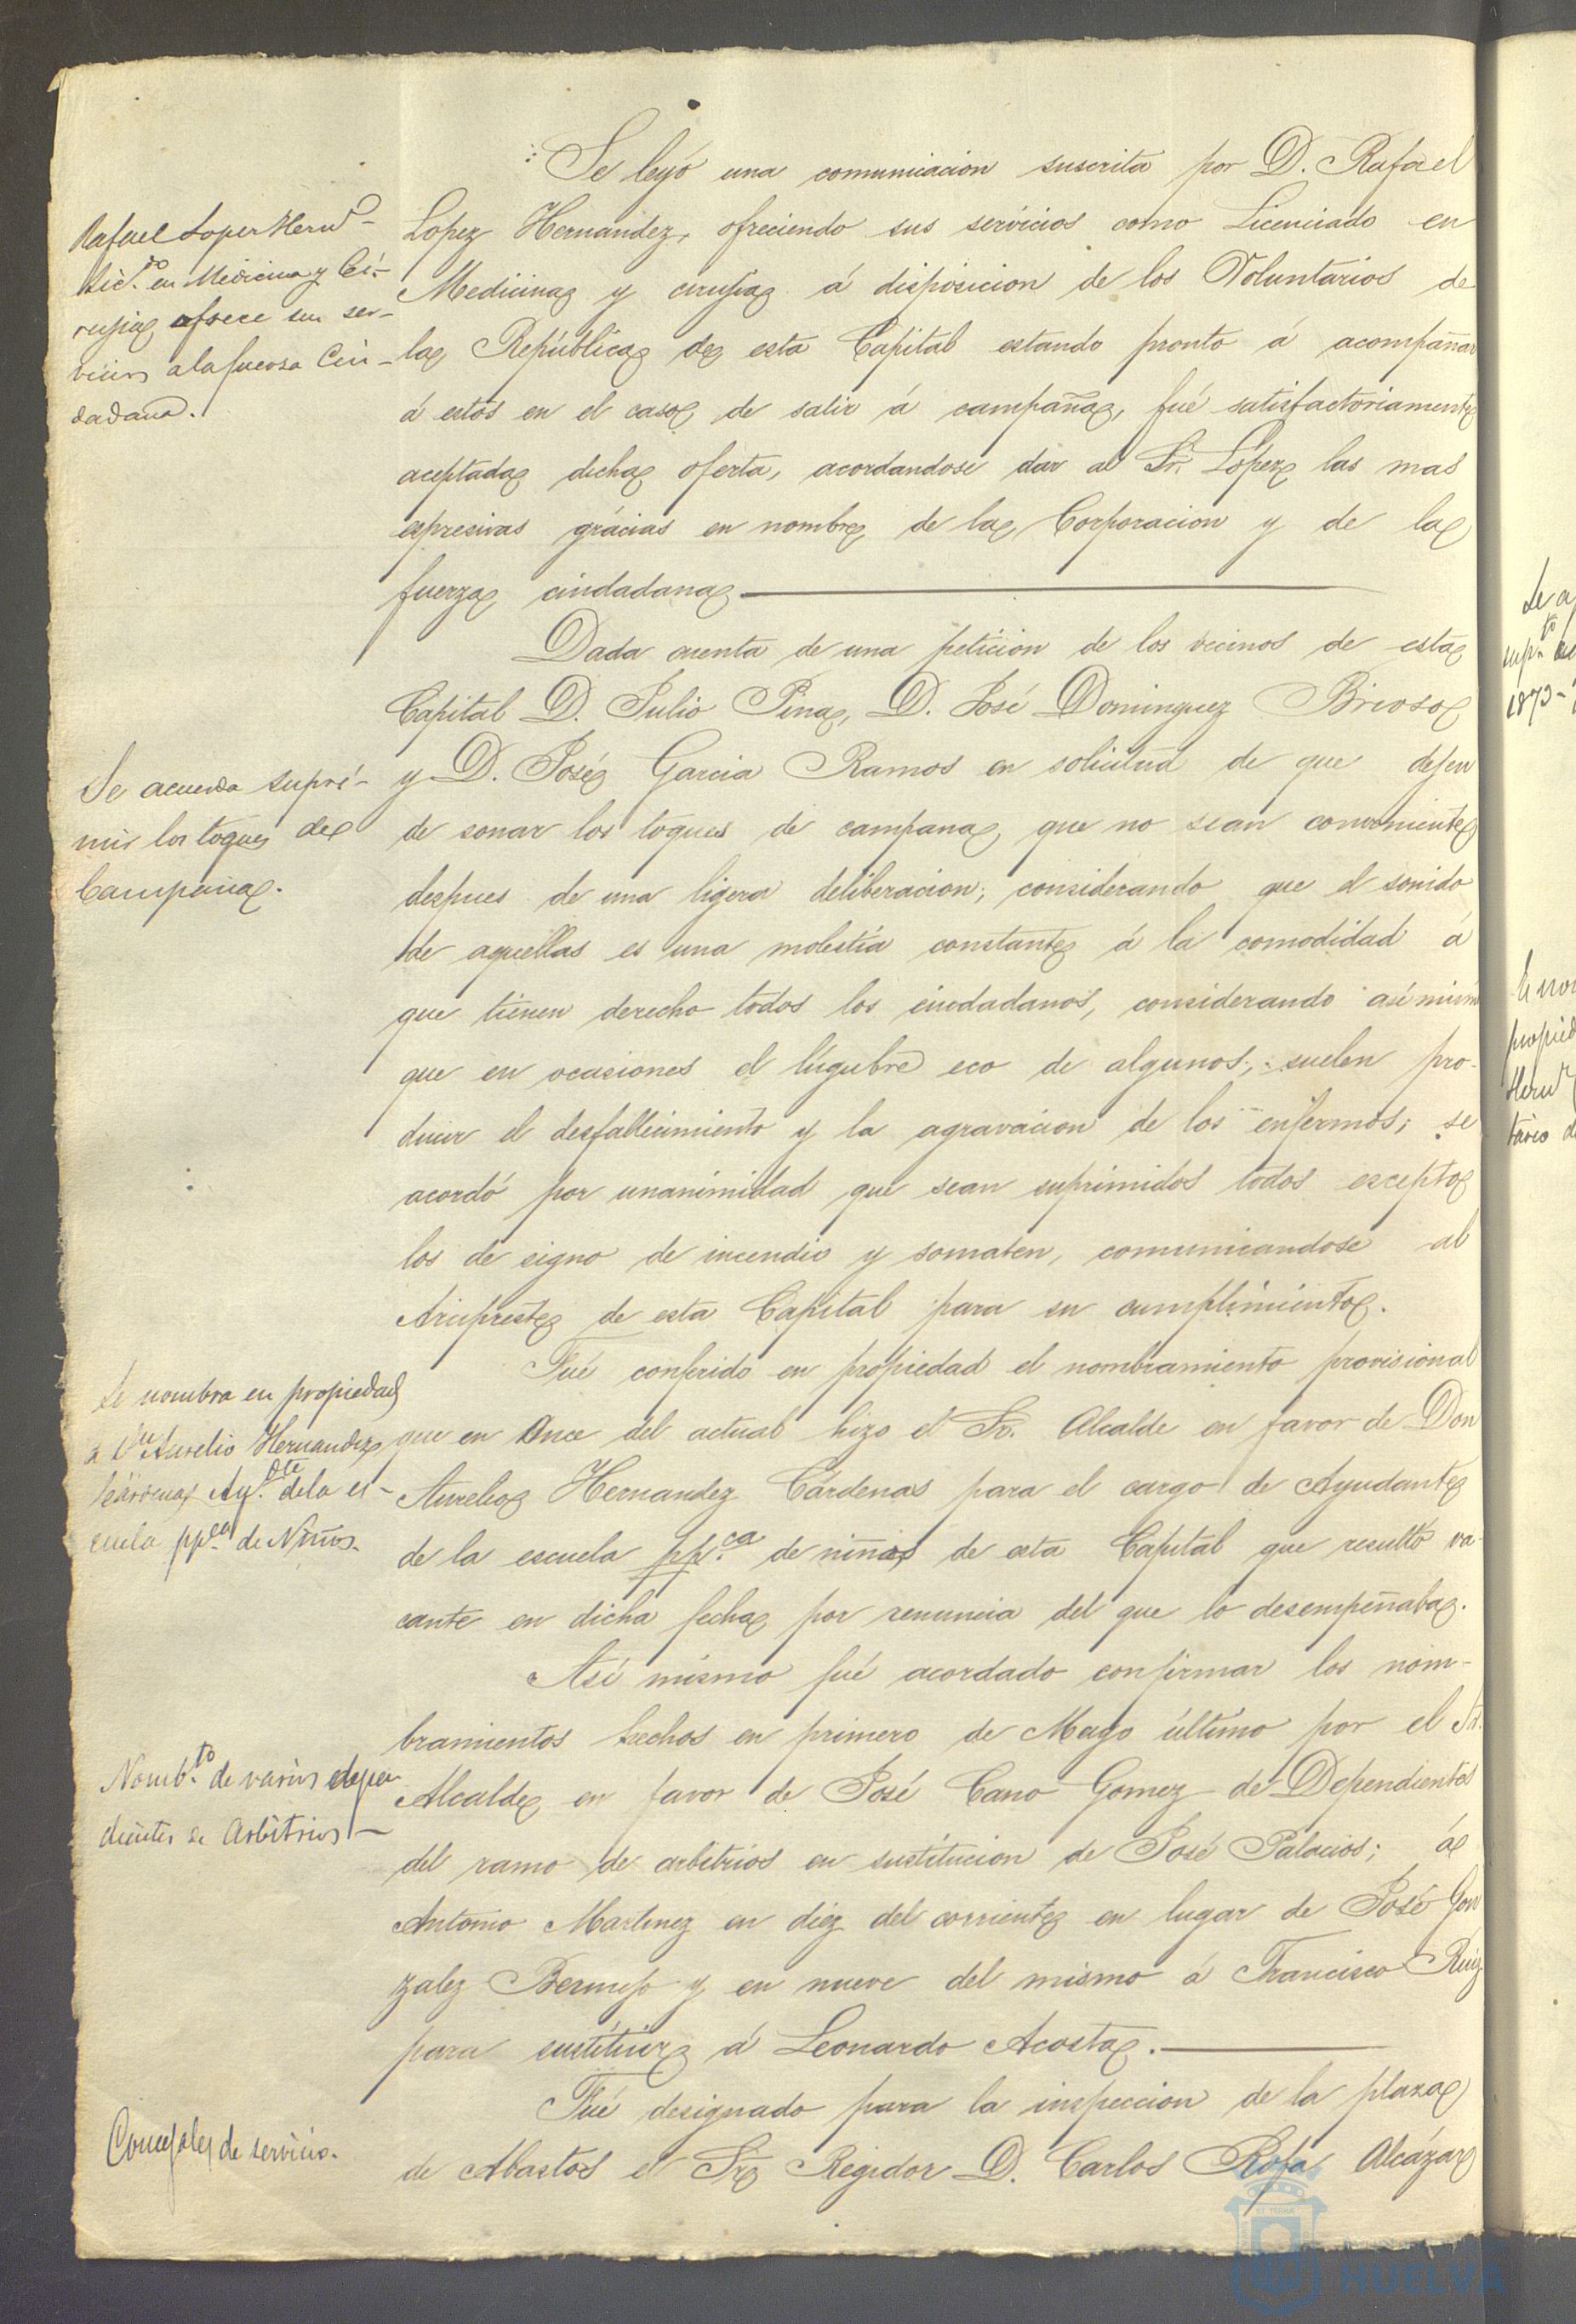 Se leyó una comunicacion suscrita por D. Rafael
Lopez Hernandez, ofreciendo sus servicios como Licenciado en
Medicina y cirujia á disposicion de los Voluntarios de
la República de esta Capital estando pronto á acompañar
á estos en el caso de salir á campaña, fué satisfactoriamente
aceptada dicha oferta, acordandose dar al Sr. Lopez las mas
espresivas grácias en nombre de la Corporacion y de la
fuerza ciudadana
Rafael Lopez Hernz
Licdo en Medicina y Ci-
rujia ofrece sus ser-
vicios a la fuerza Ciu-
dadana.
Dada cuenta de una peticion de los vecinos de esta
Capital D. Julio Pina, D. José Dominguez Brioso
y D. José Garcia Ramos en solicitud de que dejen
de sonar los toques de campana, que no sean conveniente
despues de una ligera deliberacion; considerando que el sonido
de aquellas es una molestia constante á la comodidad á
que tienen derecho todos los ciudadanos, considerando asi mismo
que en ocasiones el lúgubre eco de algunos, suelen pro-
ducir el desfallecimiento y la agravacion de los enfermos; se
acordó por unanimidad que sean suprimidos todos escepto
los de signo de incendio y somaten, comunicandose al
Arcipreste de esta Capital para su cumplimiento.
Se acuerda supri-
mir los toques de
Campana.
Fué conferido en propiedad el nombramiento provisional
que en Once del actual hizo el Sr. Alcalde en favor de Don
Aurelio Hernandez Cárdenas para el cargo de Ayudante
de la escuela ppca de niños de esta Capital que resultó va-
cante en dicha fecha por renuncia del que lo desempeñaba.
Se nombra en propiedad
a Dn Aurelio Hernandez
Cárdenas Ay.dte de la es-
cuela ppca de Niños.
Asi mismo fué acordado confirmar los nom-
bramientos hechos en primero de Mayo último por el Sr.
Alcalde en favor de José Cano Gomez de Dependientes
del ramo de arbitrios en sustitucion de José Palacios; á
Antonio Martinez en diez del corriente en lugar de José Gon
zalez Bermejo y en nueve del mismo á Francisco Ruiz
para sustituir á Leonardo Acosta.
Nomb.to de varios depen
dientes de Arbitrios
Fué designado para la inspeccion de la plaza
de Abastos el Sr Regidor D. Carlos Rofa Alcázar
Concejales de servicio.
1873-
HUELVA